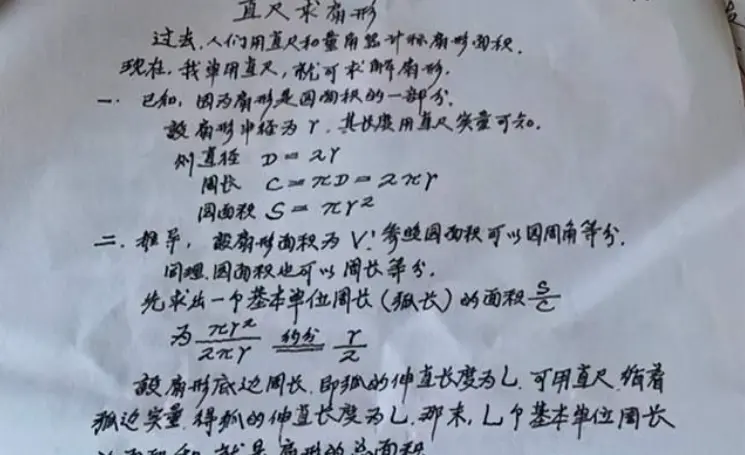 直尺求扇形
过去,人们用直尺和量角器计标扇形面积.
现在,我单用直尺,就可求解扇形.
一. 已知,因为扇形是园面积的一部分.
設扇形半径为 r,其长度用直尺实量可知.
则直径 D = 2r
周长 C = πD = 2πr
园面积 S = πr²
二. 推导,設扇形面积为 V! 参照园面积可以园周角等分.
同理.园面积也可以周长等分.
先求出一个基本单位周长(弧长)的面积 S/C
为 πr²/2πr 约分 r/2
設扇形底边周长.即弧的伸直长度为 L.可用直尺
弧边实量.得弧的伸直长度为 L.那末,L个基本单位周长
就是扇形的总面积